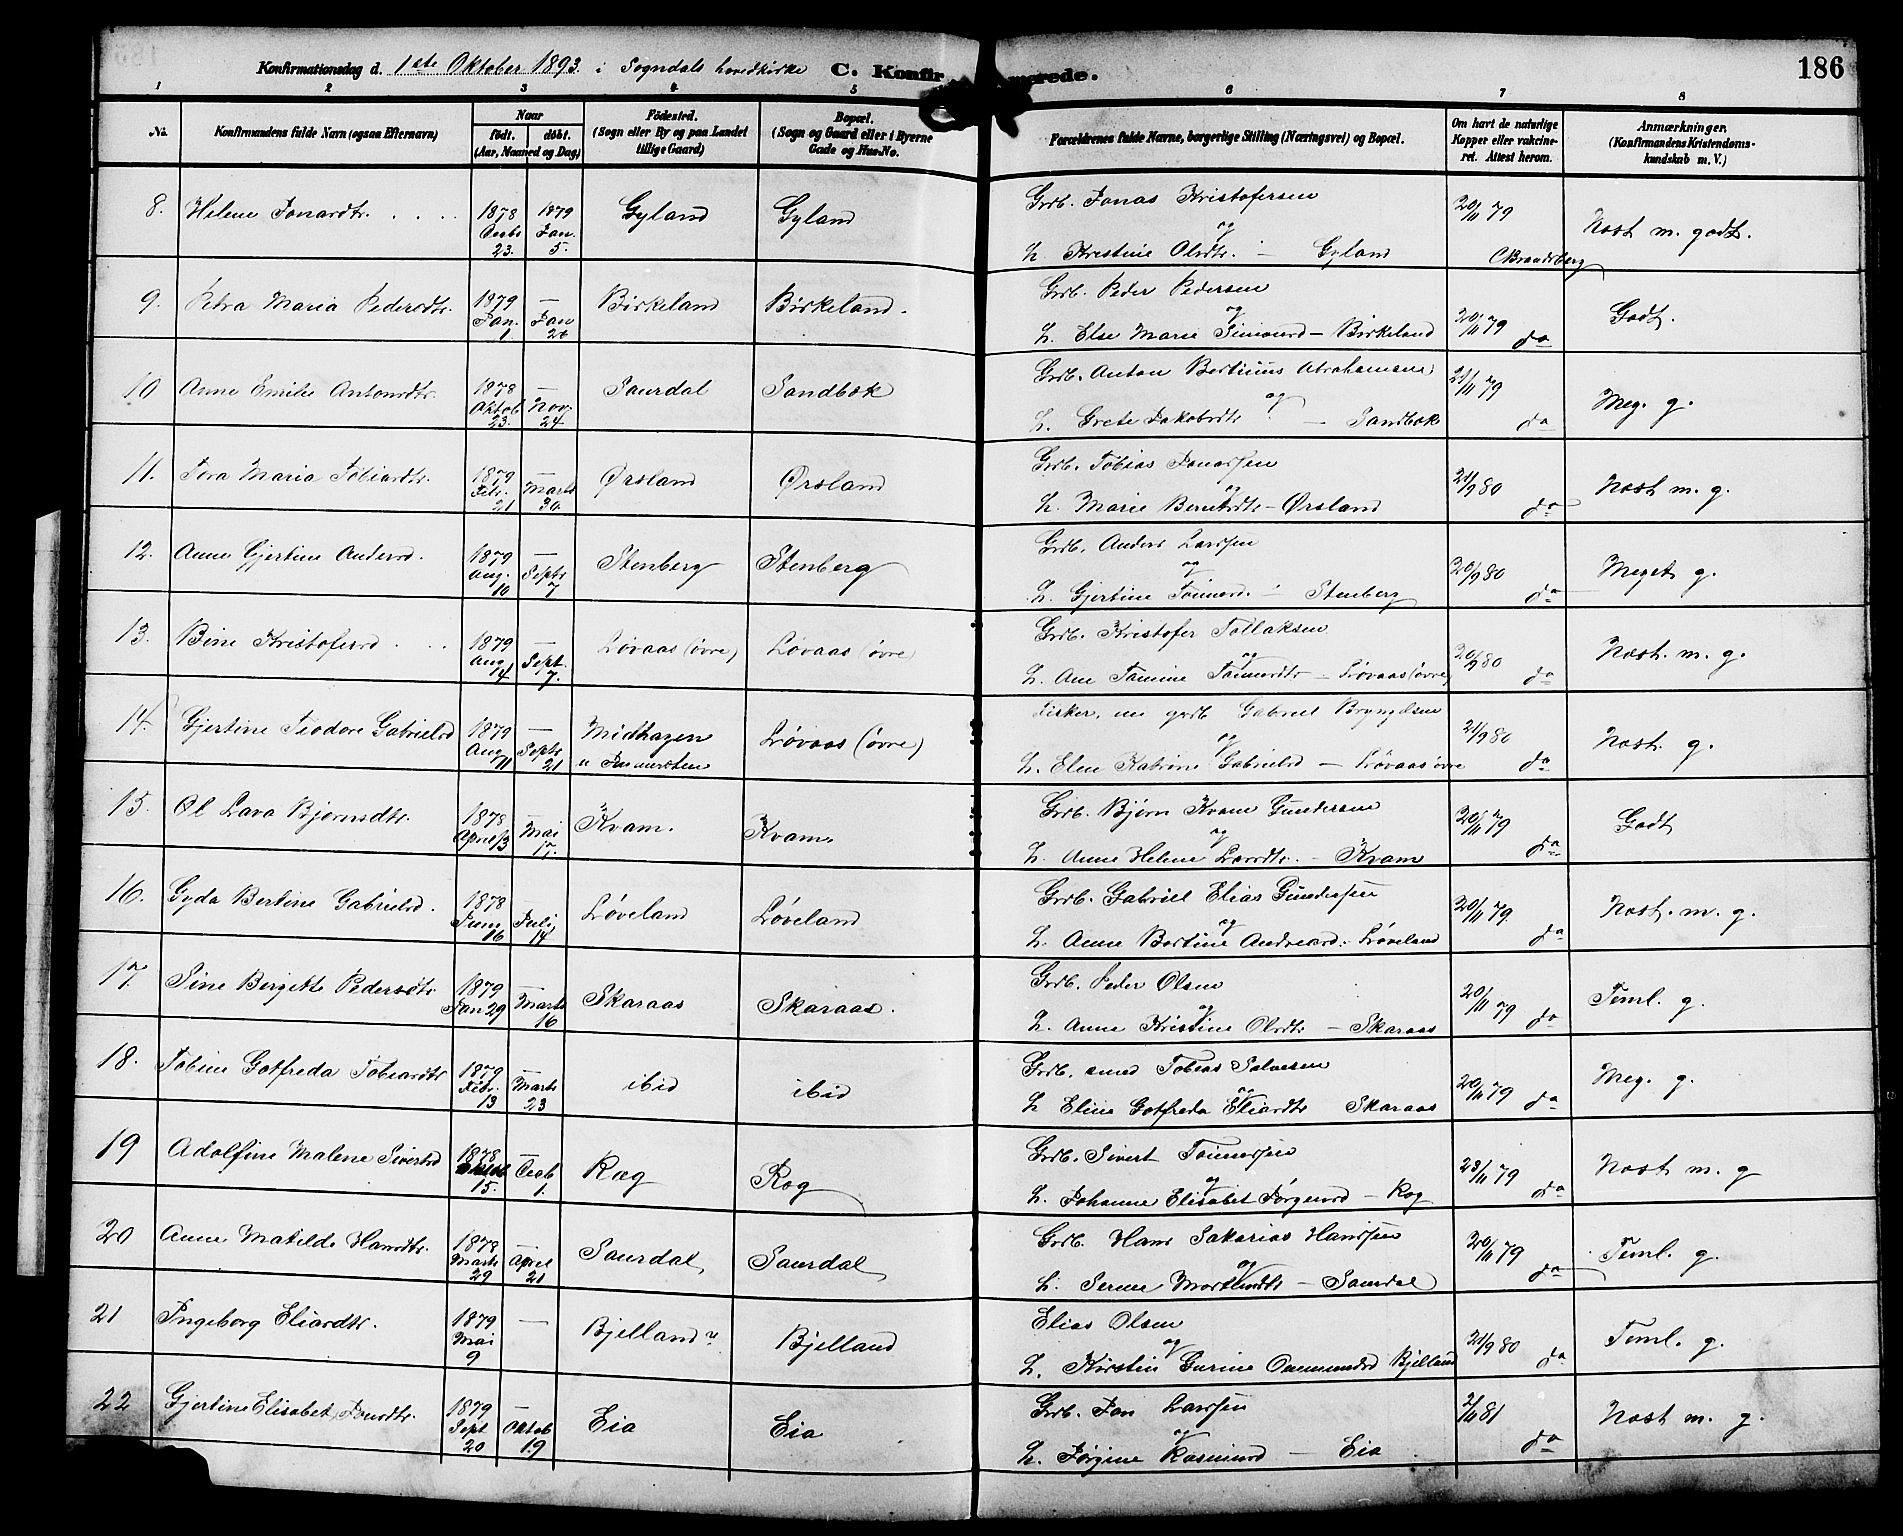 186
Konfirmationsdag d. 1ste Oktober 1893. i Sogndals hovedkirke C. Konfir merede.
1 2 3 4 5 6 7 8
No. Konfirmandens fulde Navn (ogsaa Efternavn) Naar født. døbt. (Aar, Maaned og Dag) Fødested. (Sogn eller By og paa Landet tillige Gaard) Bopæl. (Sogn og Gaard eller i Byerne Gade og Hus-No. Forældrenes fulde Navne, borgerlige Stilling (Næringsvei) og Bopæl. Om havt de naturlige Kopper eller vakcineret. Attest herom. Anmærkninger. (Konfirmandens Kristendomskundskab m. V.)
8. Helene Jonasdtr. 1878 Decbr 23. 1879 Jan. 5. Gyland Gyland Grdb. Jonas Kristofersen 20/11 79 Næst m. godt.
og
h. Kristine Olsdtr. – Gyland CBrandsberg
9. Petra Maria Pedersdtr. 1879 Jan. 1. — Jan 26 Birkeland Birkeland. Grdb. Peder Pedersen 20/11 79 Godt.
og
h. Else Marie Simonsd – Birkeland do
10 Anne Emilie Antonsdtr. 1878 Oktob 23. — Nov. 24 Saurdal Sandbæk Grdb. Anton Bertinus Abrahamsen 21/11 79 Meg. g.
og
h. Grete Jakobsdtr – Sandbæk do
11. Tora Maria Tobiasdtr. 1879 Febr. 21 — Marts 30 Ørsland Ørsland Grdb. Tobias Jonassen 21/9 80 Næst m. g.
og
h. Marie Berntsdtr – Ørsland do
12. Anne Gjertine Andersd. 1879 Aug. 10 — Septr 7 Stenberg Stenberg Grdb. Anders Larssen 20/9 80 Meget g.
og
h. Gjertine Tønnesd. – Stenberg do
13. Bine Kristofersd 1879 Aug 14 — Sept. 7. Løvaas (øvre) Løvaas (øvre) Grdb. Kristofer Tollaksen 20/9 80 Næst. m. g.
og
h. Ane Tomine Tønnesdtr – Løvaas (øvre) do
14. Gjertine Teodore Gabrielsd 1879 Aug 11 — Septr 21 Midhagen Løvaas (øvre) Fisker, nu grdb Gabriel Bryngelsen 21/9 80 Næst. g.
og
h. Elen Katrine Gabrielsd – Løvaas øvre do
15. Ol Lava Bjørnsdtr. 1878 April 13 — Mai 17. Kvam. Kvam. Grdb. Bjørn Kvam Gundersen 20/11 79 Godt
og
h. Anne Helene Larsdtr. – Kvam do
16. Gyda Bertine Gabrielsd. 1878 Juni 16 — Juli 14 Løveland Løveland Grdb. Gabriel Elias Gundersen 20/11 79. Næst. m. g.
og
h. Anne Bertine Andreasd. Løveland do
17. Sine Bergitte Pedersdtr 1879 Jan 29 — Marts 16 Skaraas Skaraas. Grdb. Peder Olsen 20/11 79 Teml. g.
og
h. Anne Kristine Olsdtr – Skaraas do
18. Tobine Gotfreda Tobiasdtr 1879 Febr. 13 — Marts 23 ibid ibid Grdb. Tobias Salvesen 20/11 79 Meg. g.
og
h. Eline Gotfreda Eliasdtr Skaraas do
19 Adolfine Malene Sivertsd 1878 15. — Decb 1. Ræg Ræg Grdb. Sivert Tønnesen 23/11 79 Næst m. g
og
h. Johanne Elisabet Jørgensd – Ræg do
20 Anne Matilde Hansdtr. 1878 Marts 29 — April 21 Saurdal Saurdal Grdb. Hans Sakarias Hanssen 20/11 79 Teml. g.
og
h. Serine – Saurdal do
21 Ingeborg Eliasdtr. 1879 Mai 9 — Bjelland Bjelland Elias Olsen 21/9 80 Teml. g.
og
h. Kirstin Gurine Ommundsd Bjelland do
22 Gjertine Elisabet Jonsdtr. 1879 Sept 20 — Oktob 19 Eia Eia Grdb. Jon Larssen 2/11 81 Næst m. g.
og
h. Jørgine Rasmusd – Eia do